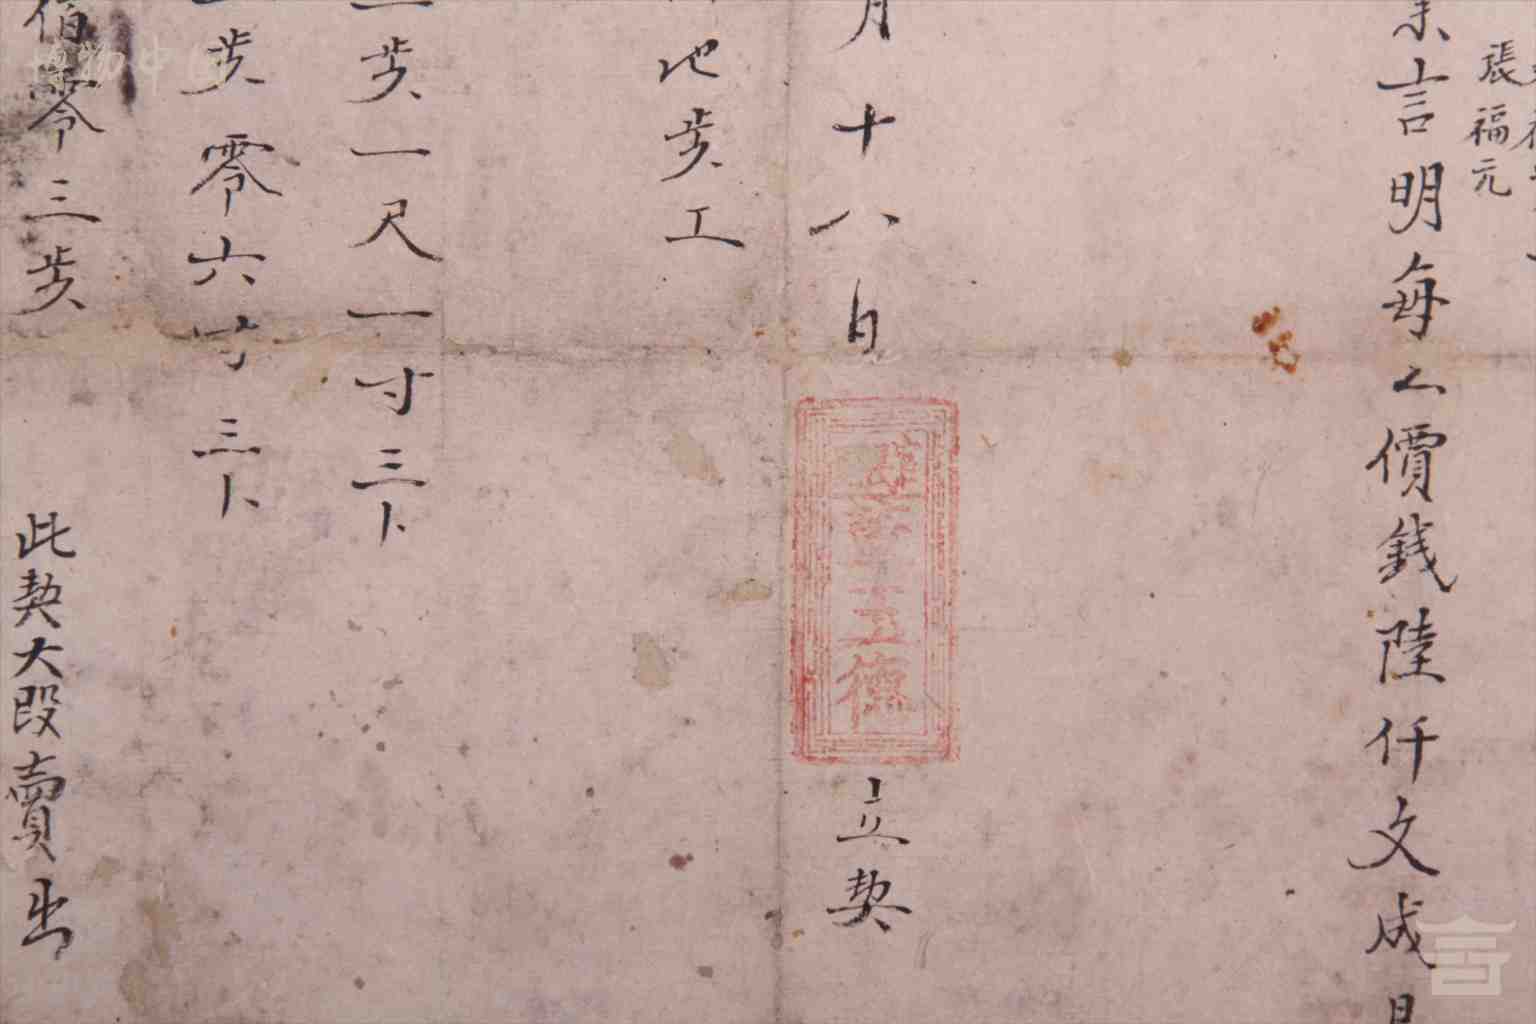 張福元
言明每厶價錢陸仟文成
月十八日
立契
地步工
步一尺一寸三卜
步零六寸三卜
佰零三步
此契大段賣出
博物中国